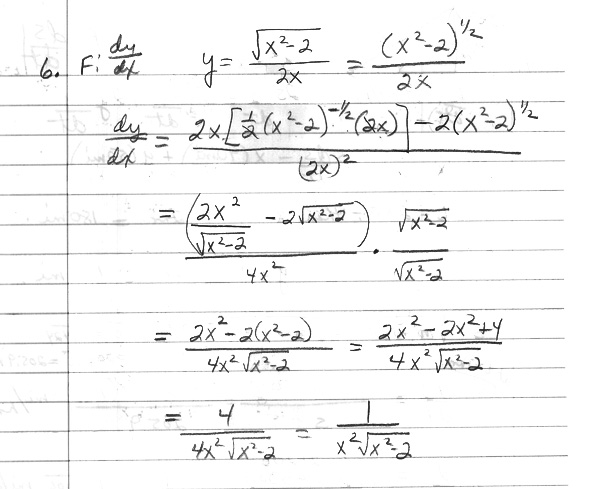 6. F: dy/dx y = √(x²-2) / 2x = (x²-2)^(1/2) / 2x
dy/dx = (2x[½(x²-2)^(-1/2)(2x)] - 2(x²-2)^(1/2)) / (2x)²
= (2x²/√(x²-2) - 2√(x²-2)) / 4x² · √(x²-2) / √(x²-2)
= (2x² - 2(x²-2)) / (4x²√(x²-2)) = (2x² - 2x² + 4) / (4x²√(x²-2))
= 4 / (4x²√(x²-2)) = 1 / (x²√(x²-2))